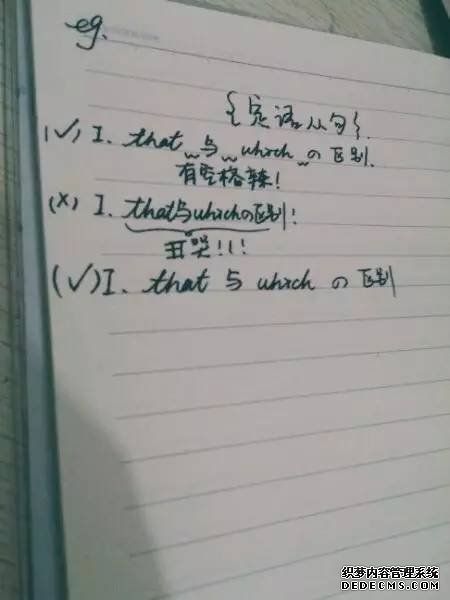 eg.
{定语从句}.
(√) I. that 与 which の 区别.
有空格辣!
(×) I. that与whichの区别!
丑哭!!!
(√) I. that 与 which の 区别
织梦内容管理系统
DEDECMS.COM